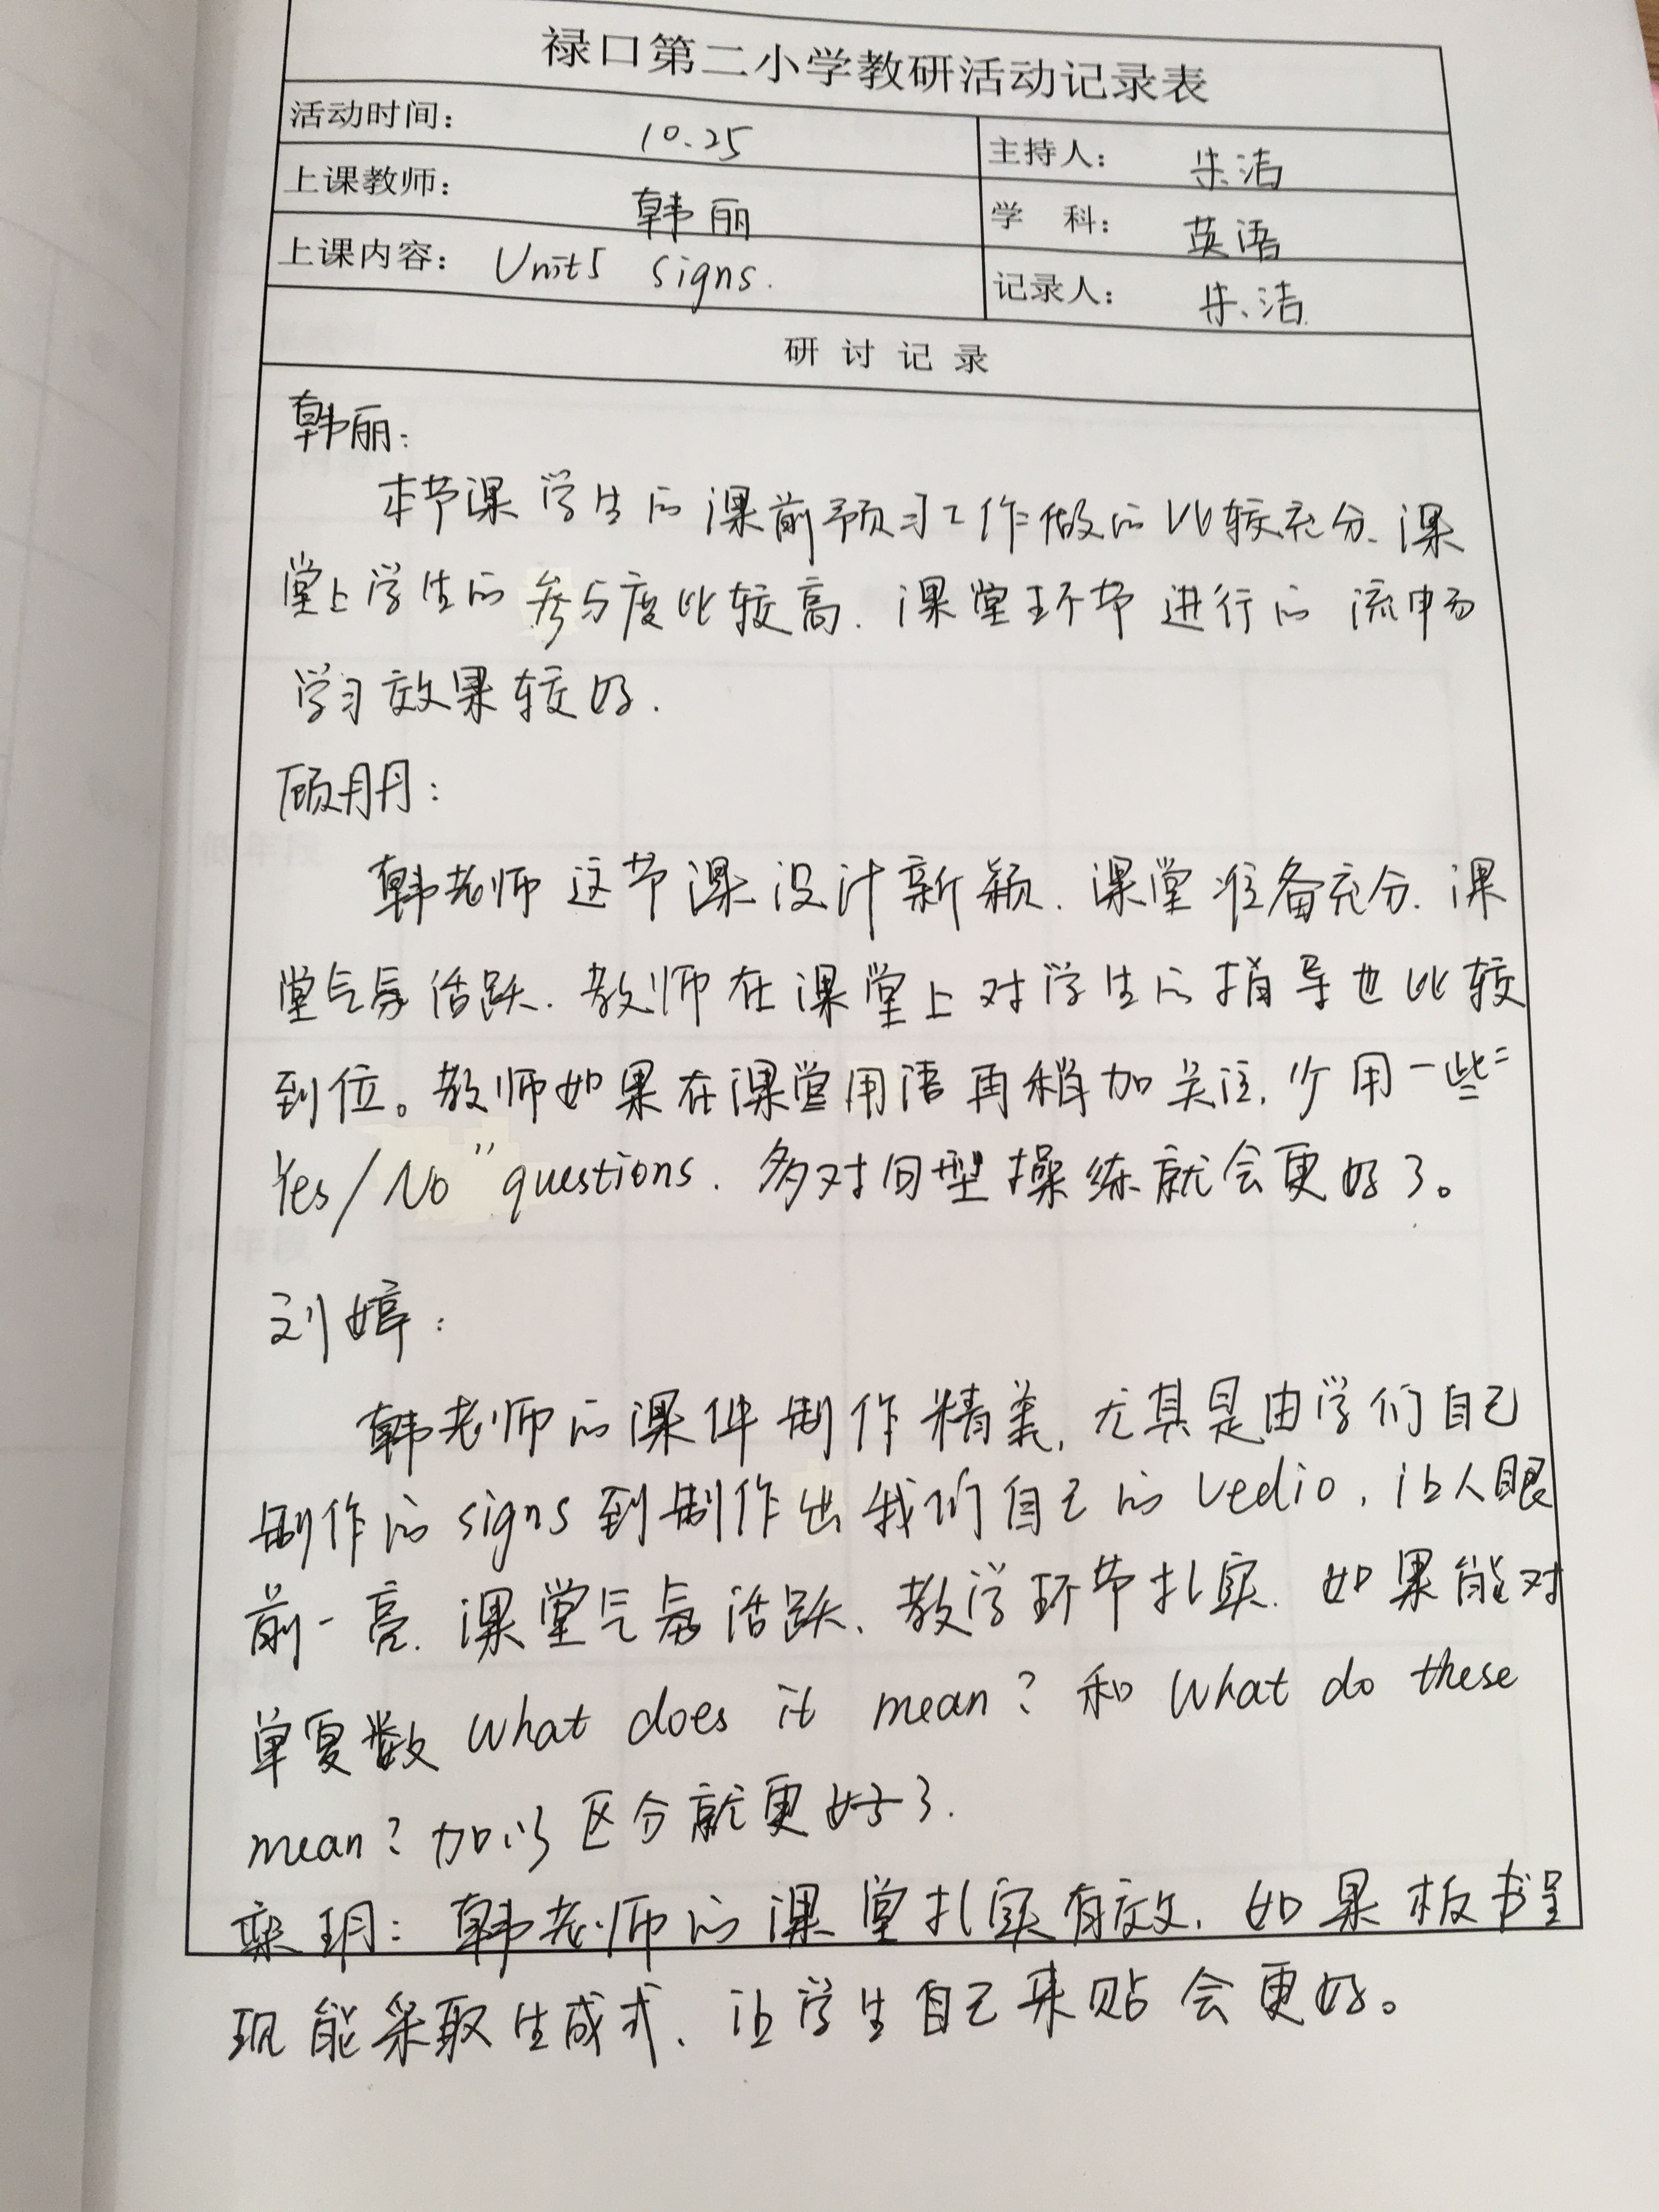 禄口第二小学教研活动记录表
活动时间： 10.25 主持人： 朱洁
上课教师： 韩丽 学 科： 英语
上课内容： Unit5 signs. 记录人： 朱洁
研 讨 记 录
韩丽：
本节课学生的课前预习工作做的比较充分、课
堂上学生的参与度比较高．课堂环节进行的流畅
学习效果较好．
顾丹丹：
韩老师这节课设计新颖．课堂准备充分．课
堂气氛活跃．教师在课堂上对学生的指导也比较
到位。教师如果在课堂用语再稍加关注，少用一些“
Yes/No" questions．多对句型操练就会更好了。
刘婷：
韩老师的课件制作精美，尤其是由学们自己
制作的signs到制作出我们自己的vedio，让人眼
前一亮．课堂气氛活跃、教学环节扎实．如果能对
单复数 what does it mean？和 what do these
mean？加以区分就更好了．
栾玥：韩老师的课堂扎实有效．如果板书呈
现能采取生成式、让学生自己来贴会更好。